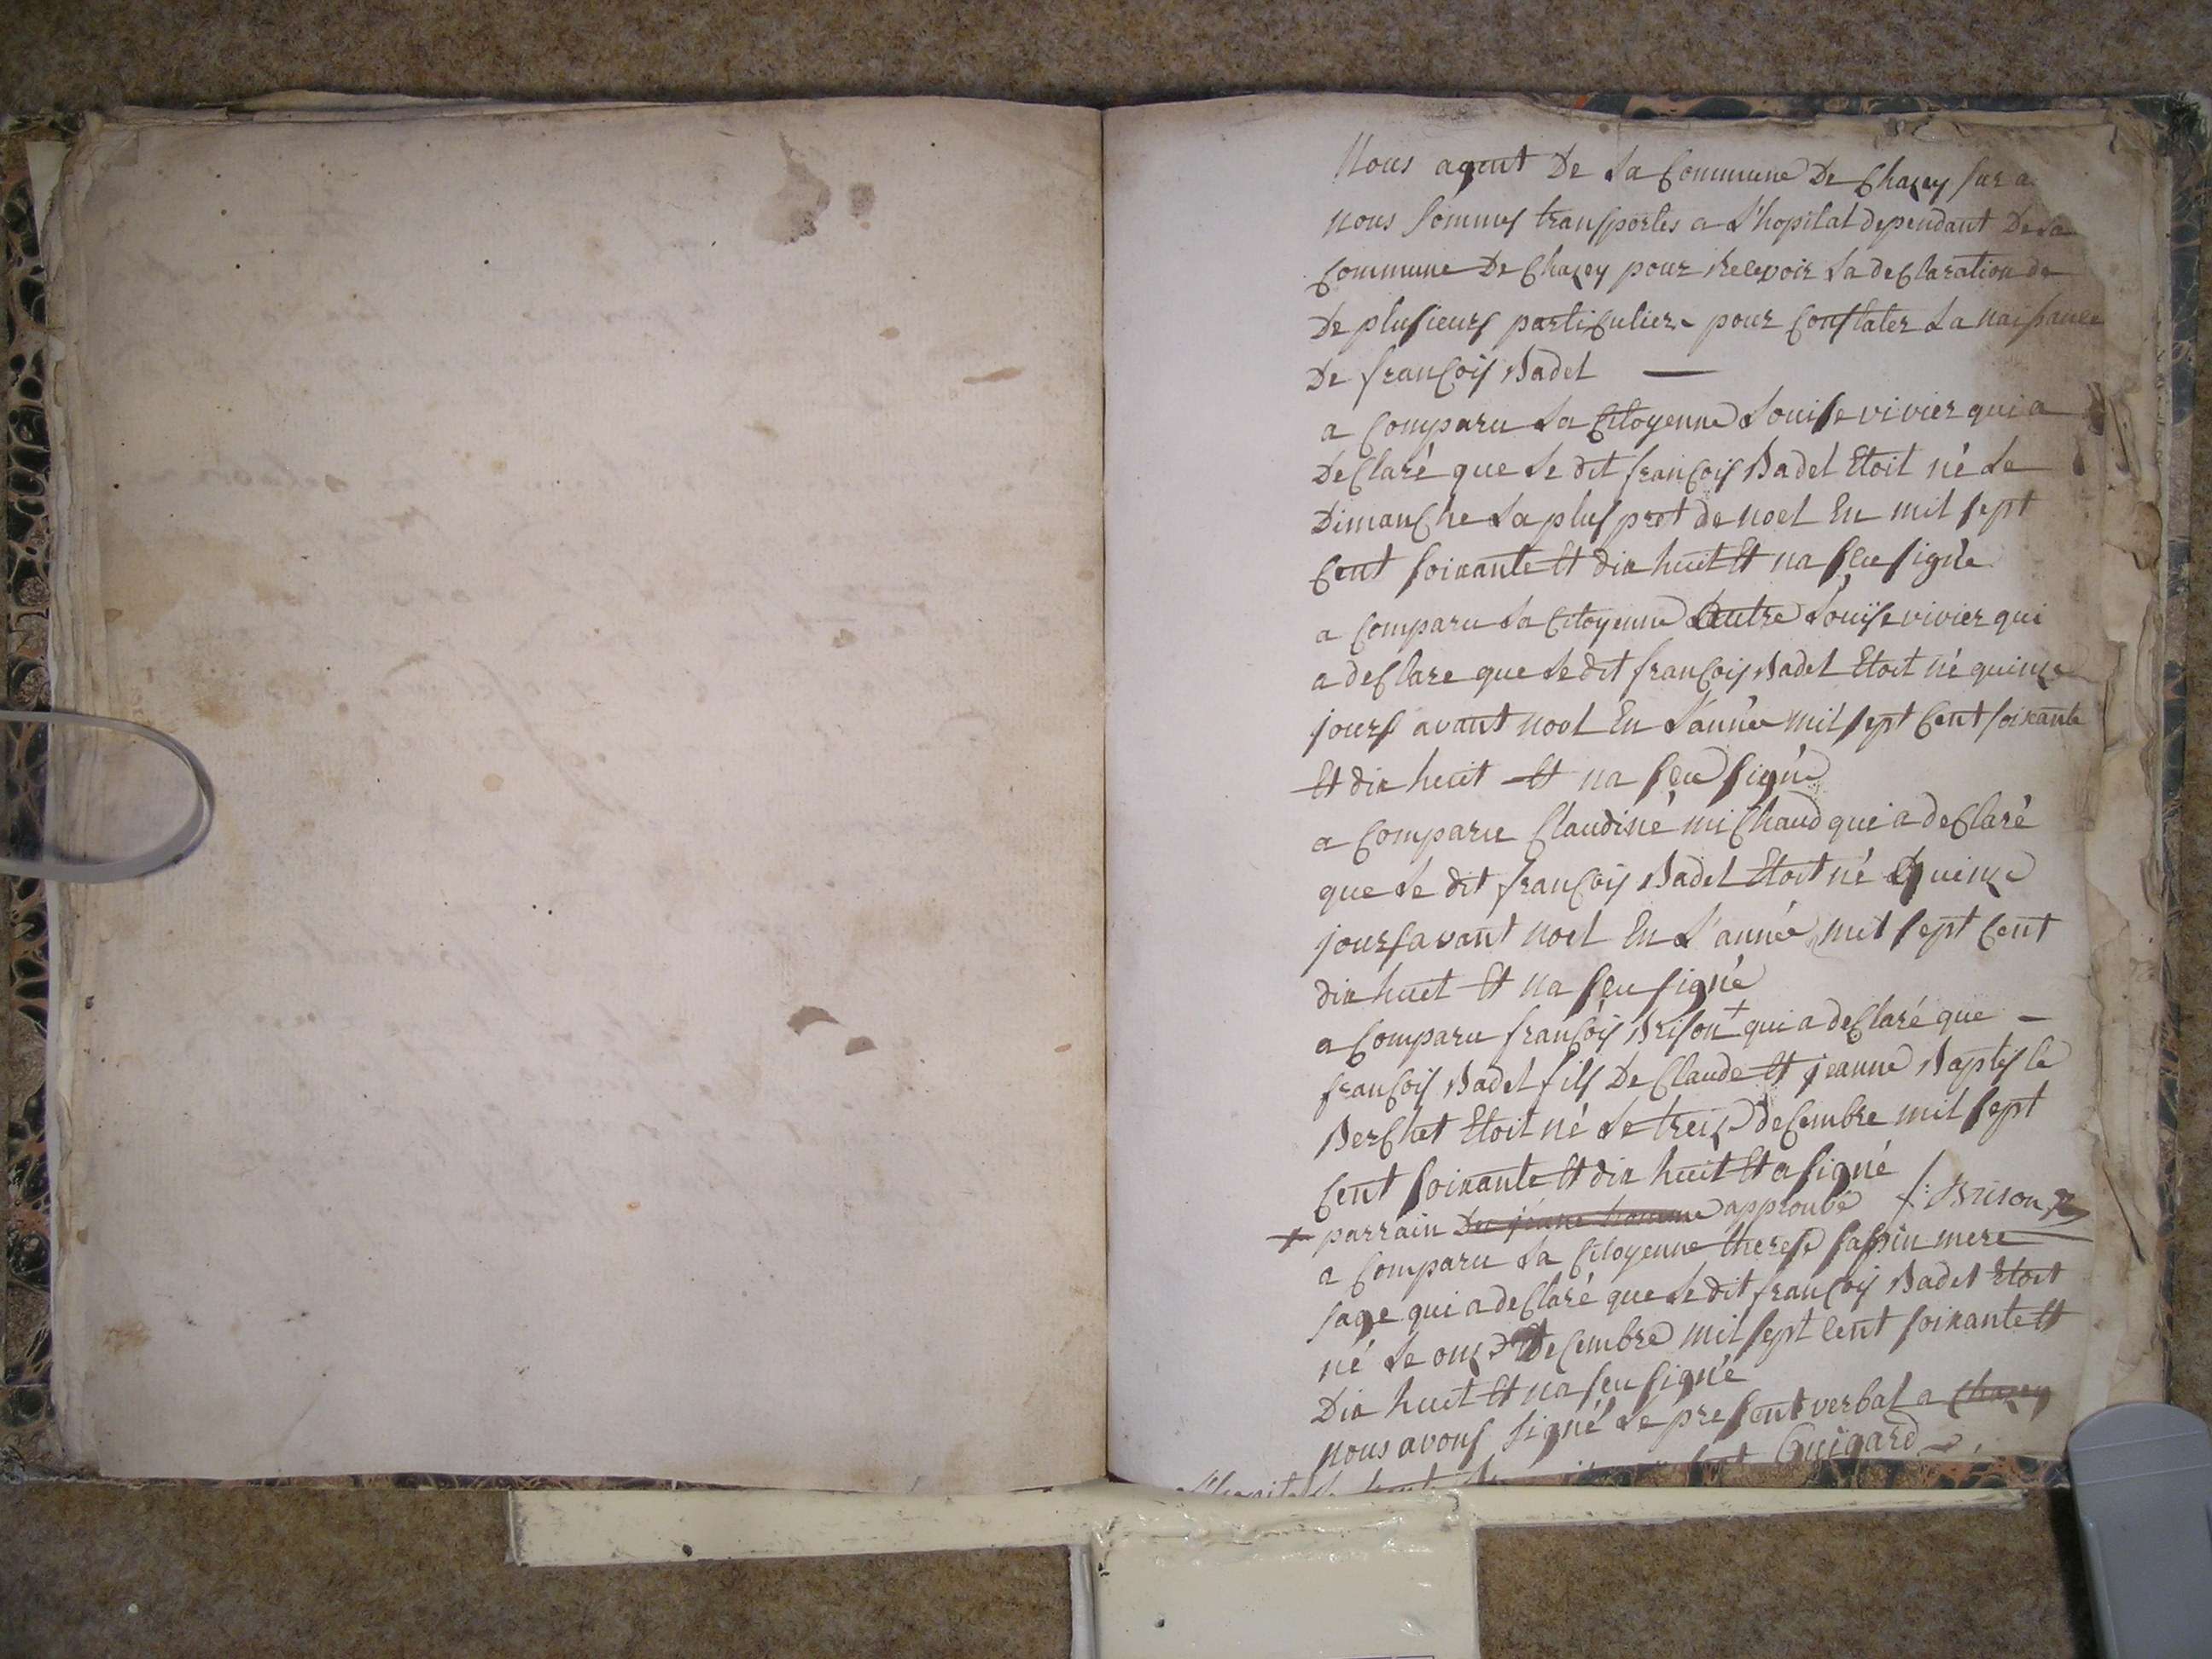 Nous agent De La Commune De Chazey sur a
nous sommes transportes a L'hopital dependant De La
Commune De Chazey pour Recevoir La declaration de
De plusieurs particuliers pour constater La naissance
De francois Badel —
a comparu La Citoyenne Louise vivier qui a
Declaré que Le dit francois Badel Etoit né Le
Dimanche La plus pret de noel En mil sept
Cent soixante Et dix huit Et na seu signé
a comparu La Citoyenne autre Louise vivier qui
a declare que Le dit francois Badel Etoit né quinze
jours avant noel En L'année mil sept Cent soixante
Et dix huit Et na seu signé
a comparu Claudine michaud qui a declaré
que Le dit francois Badel Etoit né quinze
jours avant noel En L'année mil sept Cent
dix huit Et na seu signé
a comparu francois Brison + qui a declaré que —
francois Badel fils De Claude Et jeanne Baptiste
Berchet Etoit né Le treize decembre mil sept
Cent soixante Et dix huit Et a signé
+ parrain Du jeune homme approuvé f: Brison
a comparu La Citoyenne therese sassin mere
sage qui a declaré que Le dit francois Badel Etoit
né Le onze Decembre mil sept cent soixante Et
Dix huit Et na seu signé
nous avons signé Le present verbal a Chazey
L'hopital Le Guigard